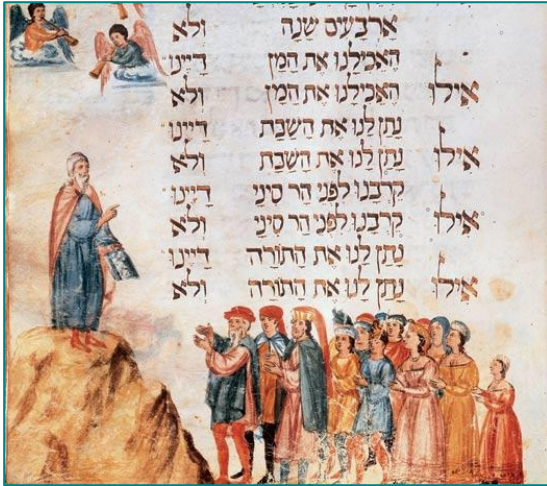 אַרְבָעִים שָנָה וְלֹא
הֶאֱכִילָנוּ אֶת הַמָן דַיֵינוּ
אִילוּ הֶאֱכִילָנוּ אֶת הַמָן וְלֹא
נָתַן לָנוּ אֶת הַשַבָת דַיֵינוּ
אִילוּ נָתַן לָנוּ אֶת הַשַבָת וְלֹא
קֵרְבָנוּ לִפְנֵי הַר סִינַי דַיֵינוּ
אִילוּ קֵרְבָנוּ לִפְנֵי הַר סִינַי וְלֹא
נָתַן לָנוּ אֶת הַתוֹרָה דַיֵינוּ
אִילוּ נָתַן לָנוּ אֶת הַתוֹרָה וְלֹא